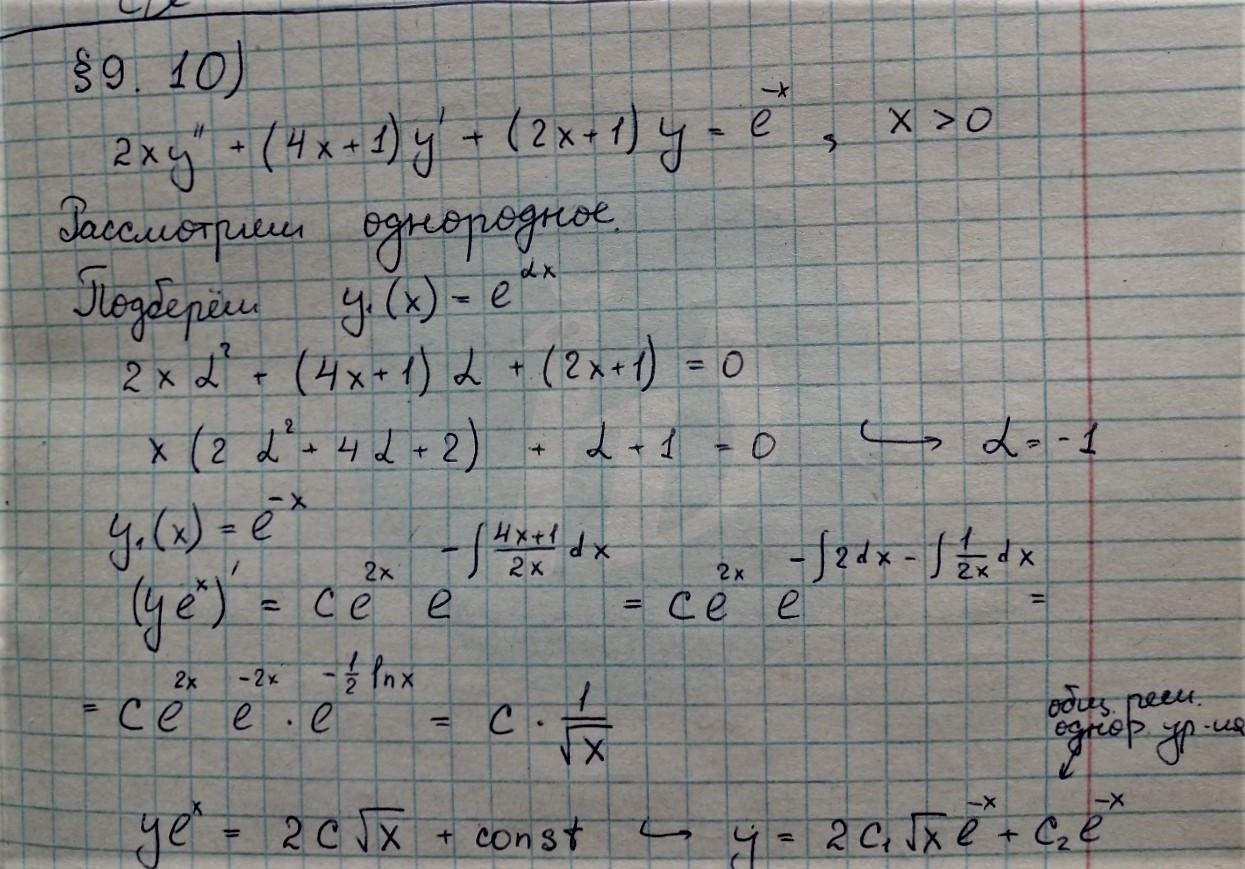 §9. 10)
2xy'' + (4x+1)y' + (2x+1)y = e^{-x}, x > 0
Рассмотрим однородное.
Подберём y₁(x) = e^{αx}
2xα² + (4x+1)α + (2x+1) = 0
x(2α² + 4α + 2) + α + 1 = 0 ↪ α = -1
y₁(x) = e^{-x}
(ye^x)' = ce^{2x} e^{-∫\frac{4x+1}{2x}dx} = ce^{2x} e^{-∫2dx - ∫\frac{1}{2x}dx} =
= ce^{2x} e^{-2x} · e^{-\frac{1}{2}lnx} = c · \frac{1}{\sqrt{x}}
общ. реш.
однор. ур-ия
ye^x = 2c√x + const ↪ y = 2c₁√x e^{-x} + c₂e^{-x}